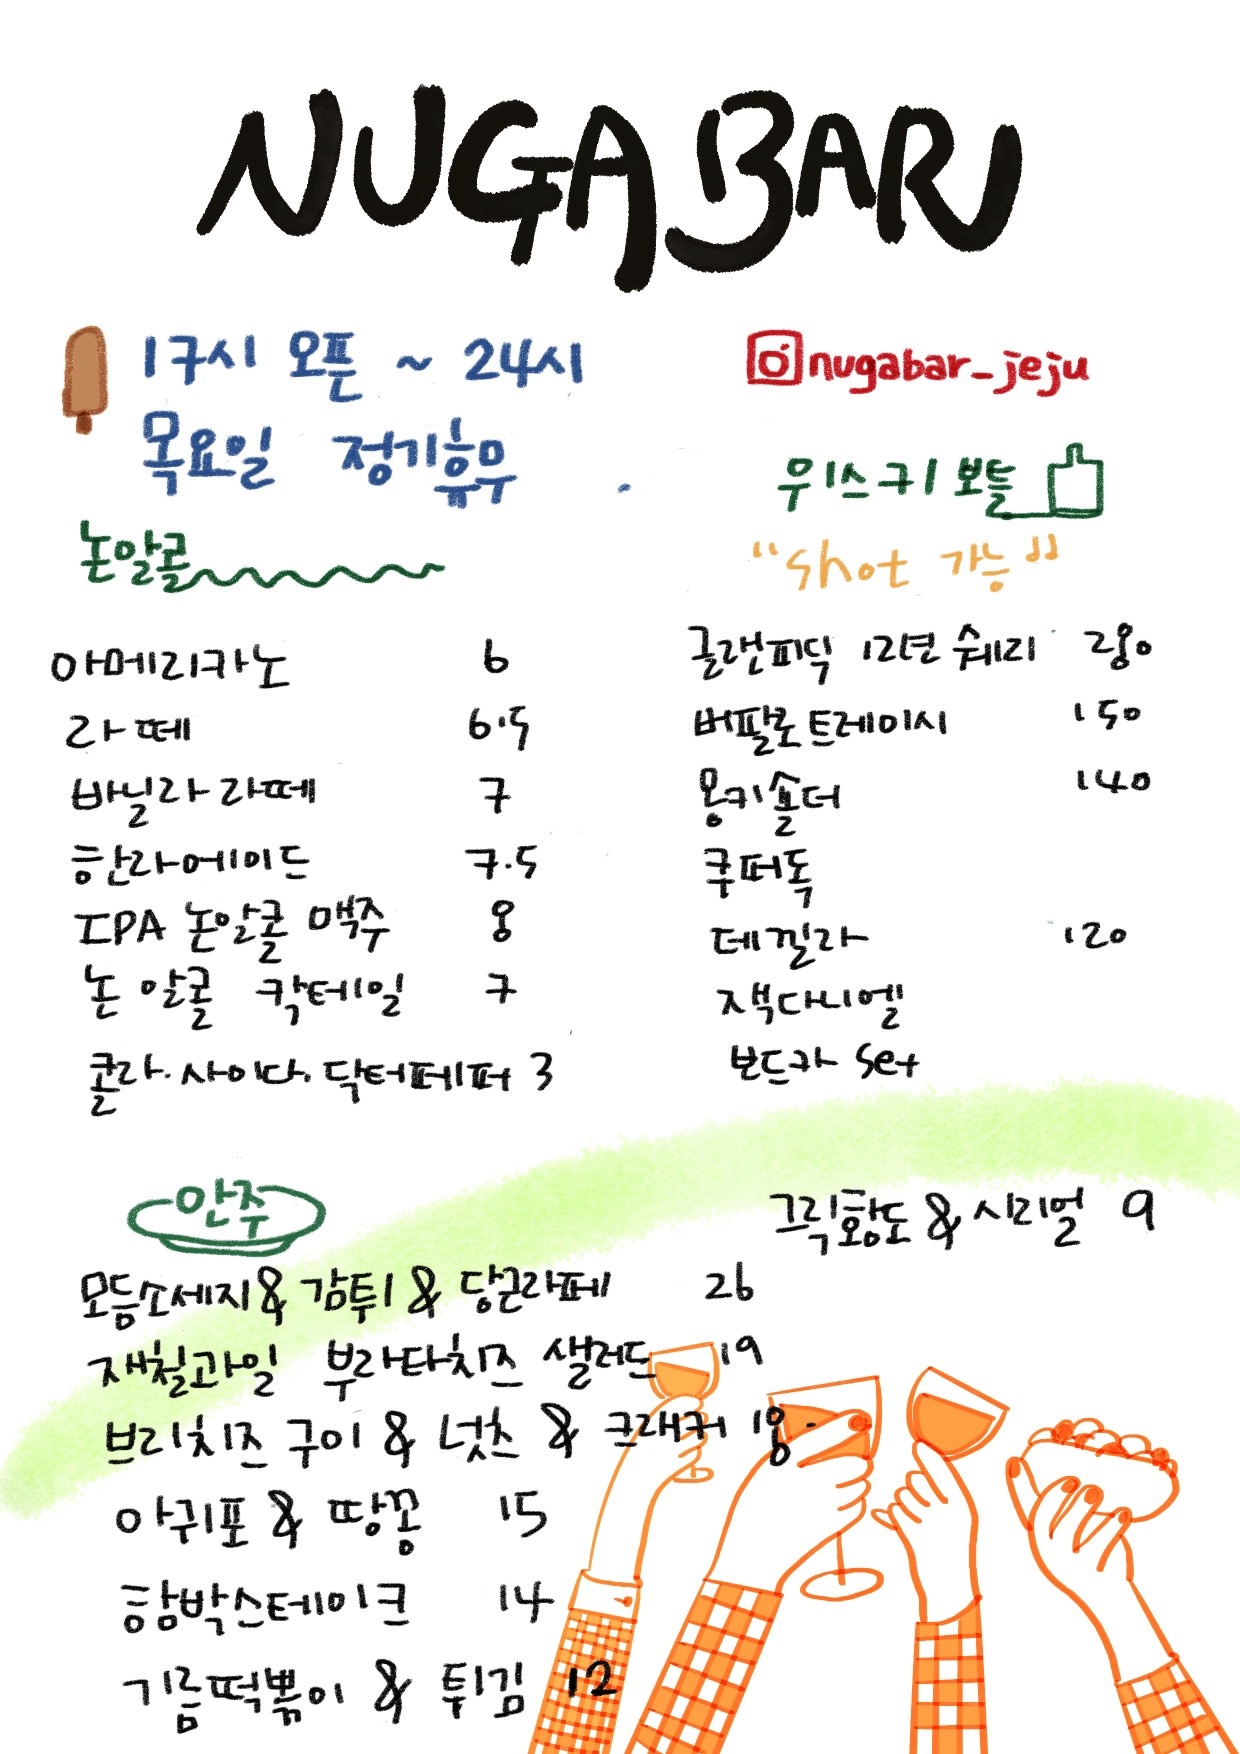 NUGA BAR
17시 오픈 ~ 24시
목요일 정기휴무
nugabar_jeju
논알콜
아메리카노 6
라떼 6.5
바닐라라떼 7
한라에이드 7.5
IPA 논알콜 맥주 8
논알콜 칵테일 7
콜라.사이다.닥터페퍼 3
위스키 보틀
"shot 가능"
글랜피딕 12년 쉐리 280
버팔로트레이시 150
몽키숄더 140
쿠퍼독
데낄라 120
잭다니엘
보드카 set
안주
그릭황도 & 시리얼 9
모듬소세지 & 감튀 & 당근라페 26
재철과일 부라타치즈 샐러드 19
브리치즈 구이 & 넛츠 & 크래커 18
아귀포 & 땅콩 15
함박스테이크 14
기름떡볶이 & 튀김 12